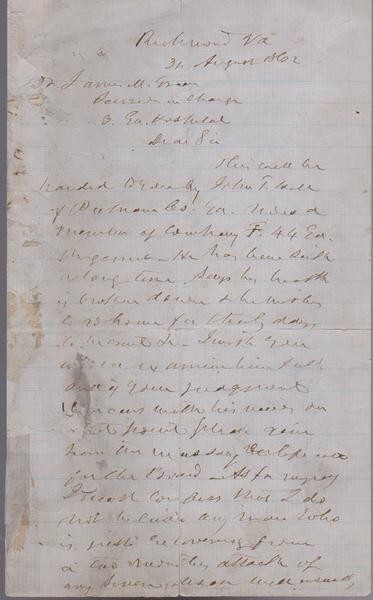 Richmond Va
31 August 1862
Dr James M. Green
Surgeon in Charge
3. Ga. Hospital
Dear Sir
This will be
handed to you by John T.
of Putnam Co. Ga. He is a
member of Company F. 44 Ga.
Regiment He has been sick
a long time Says his health
is broken down & he wishes
to go home for thirty days
to recruit I wish you
would examine him full
and if your judgment
with his views on
that point please give
him the necessary certificate
for the Board As for myself
I must confess that I do
not believe any man who
is just recovering from
a two months attack of
any disease